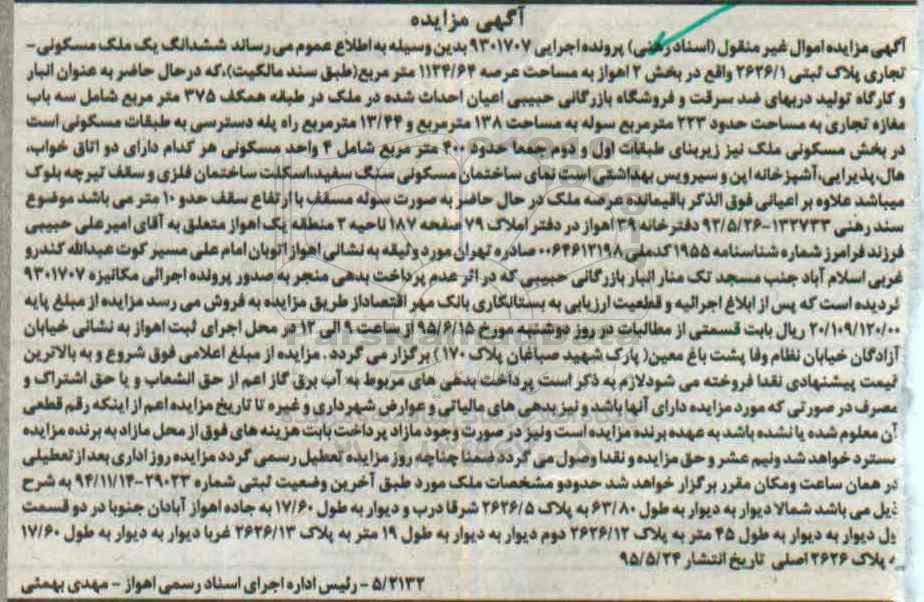 آگهی مزایده
آگهی مزایده اموال غیر منقول (اسناد رهنی) پرونده اجرایی ۹۳۰۱۷۰۷ بدین وسیله به اطلاع عموم می رساند ششدانگ یک ملک مسکونی -
تجاری پلاک ثبتی ۲۶۲۶/۱ واقع در بخش ۲ اهواز به مساحت عرصه ۱۱۲۴/۶۴ متر مربع(طبق سند مالکیت)،که درحال حاضر به عنوان انبار
و کارگاه تولید دربهای ضد سرقت و فروشگاه بازرگانی حبیبی اعیان احداث شده در ملک در طبقه همکف ۳۷۵ متر مربع شامل سه باب
مغازه تجاری به مساحت حدود ۲۲۳ مترمربع سوله به مساحت ۱۳۸ مترمربع و ۱۳/۴۴ مترمربع راه پله دسترسی به طبقات مسکونی است
در بخش مسکونی ملک نیز زیربنای طبقات اول و دوم جمعا حدود ۴۰۰ متر مربع شامل ۴ واحد مسکونی هر کدام دارای دو اتاق خواب،
هال،پذیرایی،آشپزخانه اپن و سیرویس بهداشتی است نمای ساختمان مسکونی سنگ سفید،اسکلت ساختمان فلزی و سقف تیرچه بلوک
میباشد علاوه بر اعیانی فوق الذکر باقیمانده عرصه ملک در حال حاضر به صورت سوله مسقف با ارتفاع سقف حدو ۱۰ متر می باشد موضوع
سند رهنی ۱۳۲۷۳۳-۹۲/۵/۲۶ دفترخانه ۳۹ اهواز در دفتر املاک ۷۹ صفحه ۱۸۷ ناحیه ۲ منطقه یک اهواز متعلق به آقای امیرعلی حبیبی
فرزند فرامرز شماره شناسنامه ۱۹۵۵ کدملی ۰۰۶۴۶۱۲۱۹۸ صادره تهران مورد وثیقه به نشانی اهواز اتوبان امام علی مسیر کوت عبدالله کندرو
غربی اسلام آباد جنب مسجد تک منار انبار بازرگانی حبیبی که در اثر عدم پرداخت بدهی منجر به صدور پرونده اجرائی مکانیزه ۹۳۰۱۷۰۷
گردیده است که پس از ابلاغ اجرائیه و قطعیت ارزیابی به بستانکاری بانک مهر اقتصاداز طریق مزایده به فروش می رسد مزایده از مبلغ پایه
۲۰/۱۰۹/۱۲۰/۰۰ ریال بابت قسمتی از مطالبات در روز دوشنبه مورخ ۹۵/۶/۱۵ از ساعت ۹ الی ۱۲ در محل اجرای ثبت اهواز به نشانی خیابان
آزادگان خیابان نظام وفا پشت باغ معین( پارک شهید صباغان پلاک ۱۷۰ ) برگزار می گردد . مزایده از مبلغ اعلامی فوق شروع و به بالاترین
قیمت پیشنهادی نقدا فروخته می شودلازم به ذکر است پرداخت بدهی های مربوط به آب برق گاز اعم از حق انشعاب و یا حق اشتراک و
مصرف در صورتی که مورد مزایده دارای آنها باشد و نیز بدهی های مالیاتی و عوارض شهرداری و غیره تا تاریخ مزایده اعم از اینکه رقم قطعی
آن معلوم شده یا نشده باشد به عهده برنده مزایده است ونیز در صورت وجود مازاد پرداخت بابت هزینه های فوق از محل مازاد به برنده مزایده
مسترد خواهد شد ونیم عشر و حق مزایده و نقدا وصول می گردد ضمنا چناچه روز مزایده تعطیل رسمی گردد مزایده روز اداری بعد از تعطیلی
در همان ساعت ومکان مقرر برگزار خواهد شد حدودو مشخصات ملک مورد طبق آخرین وضعیت ثبتی شماره ۲۹۰۲۳-۹۴/۱۱/۱۴ به شرح
ذیل می باشد شمالا دیوار به دیوار به طول ۶۳/۸۰ به پلاک ۲۶۲۶/۵ شرقا درب و دیوار به طول ۱۷/۶۰ به جاده اهواز آبادان جنوبا در دو قسمت
ول دیوار به دیوار به طول ۴۵ متر به پلاک ۲۶۲۶/۱۲ دوم دیوار به دیوار به طول ۱۹ متر به پلاک ۲۶۲۶/۱۳ غربا دیوار به دیوار به طول ۱۷/۶۰
پلاک ۲۶۲۶ اصلی تاریخ انتشار ۹۵/۵/۲۴
۵/۲۱۳۲ - رئیس اداره اجرای اسناد رسمی اهواز - مهدی بهمئی
ParsNamadData